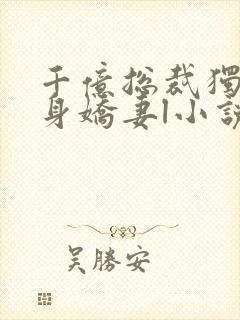 千億總裁獨
身嬌妻|小說
吳勝安